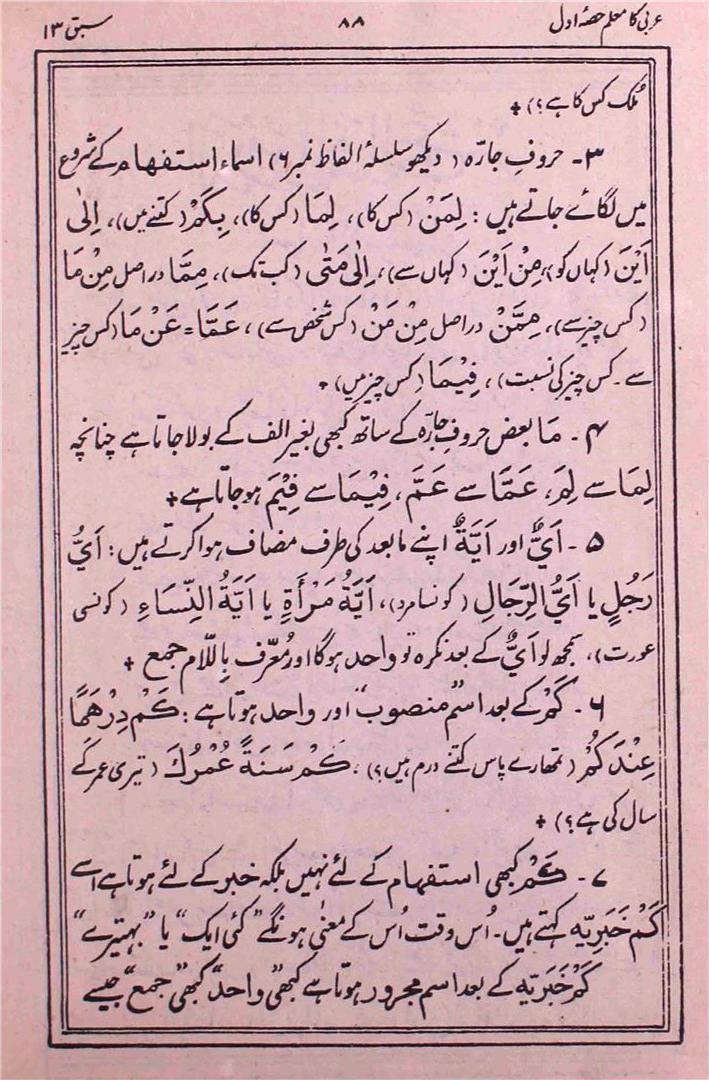 عربی کا معلم حصہ اول ۸۸ سبق ۱۳
مُلک کس کا ہے؟) +
۳- حروفِ جارّہ (دیکھو سلسلۂ الفاظ نمبر ۶) اسماء استفہام کے شروع
میں لگائے جاتے ہیں: لِمَنْ (کس کا)، لِمَا (کس کا)، بِكَمْ (کتنے میں)، اِلٰی
اَيْنَ (کہاں کو)، مِنْ اَيْنَ (کہاں سے)، اِلٰى مَتٰى (کب تک)، مِمَّا در اصل مِنْ مَا
(کس چیز سے)، مِمَّنْ در اصل مِنْ مَنْ (کس شخص سے)، عَمَّا = عَنْ مَا (کس چیز
سے۔ کس چیز کی نسبت)، فِيْمَا (کس چیز میں) +
۴- مَا بعض حروفِ جارّہ کے ساتھ کبھی بغیر الف کے بولا جاتا ہے چنانچہ
لِمَا سے لِمَ، عَمَّا سے عَمَّ، فِيْمَا سے فِيْمَ ہو جاتا ہے +
۵- اَيٌّ اور اَيَّةٌ اپنے مابعد کی طرف مضاف ہوا کرتے ہیں: اَيُّ
رَجُلٍ یا اَيُّ الرِّجَالِ (کونسا مرد)، اَيَّةُ مَرْأَةٍ یا اَيَّةُ النِّسَاءِ (کونسی
عورت)، سمجھ لو اَيٌّ کے بعد نکرہ تو واحد ہوگا اور مُعرّف بِاللّام جمع +
۶- كَمْ کے بعد اسم "منصوب" اور واحد ہوتا ہے: كَمْ دِرْهَمًا
عِنْدَكُمْ (تمھارے پاس کتنے درم ہیں؟)، كَمْ سَنَةً عُمْرُكَ (تیری عمر کے
سال کی ہے؟) +
۷- كَمْ کبھی استفہام کے لئے نہیں بلکہ خبر کے لئے ہوتا ہے اسے
كَمْ خَبَرِيّه کہتے ہیں۔ اُس وقت اُس کے معنٰی ہونگے "کئی ایک" یا "بہتیرے"
كَمْ خَبَرِيّه کے بعد اسم مجرور ہوتا ہے کبھی "واحد" کبھی "جمع" جیسے